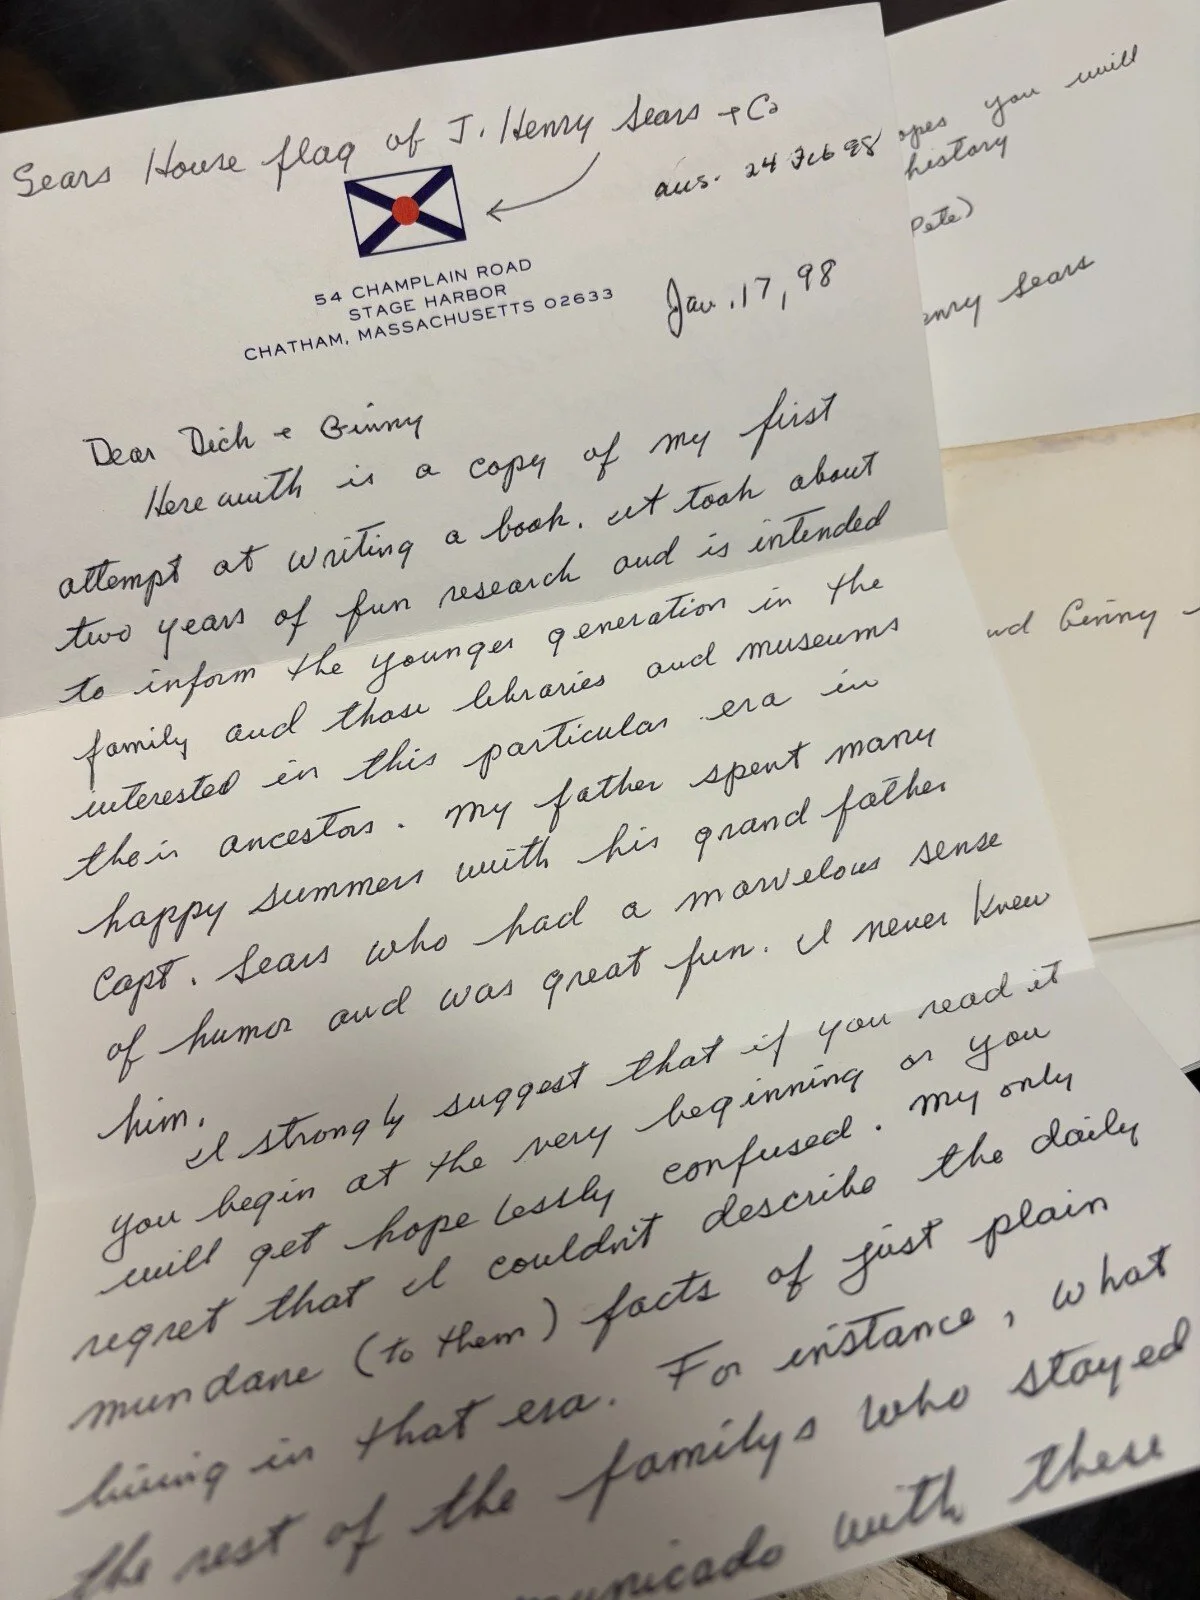 Sears House flag of J. Henry Sears + Co
ans. 24 Feb 98
54 CHAMPLAIN ROAD
STAGE HARBOR
CHATHAM, MASSACHUSETTS 02633
Jan. 17, 98
Dear Dick & Ginny
Here with is a copy of my first
attempt at writing a book. It took about
two years of fun research and is intended
to inform the younger generation in the
family and those libraries and museums
interested in this particular era in
their ancestors. My father spent many
happy summers with his grand father
Capt. Sears who had a marvelous sense
of humor and was great fun. I never knew
him.
I strongly suggest that if you read it
you begin at the very beginning or you
will get hopelessly confused. My only
regret that I couldn't describe the daily
mundane (to them) facts of just plain
living in that era. For instance, what
the rest of the familys who stayed
municado with these
opes you will
history
Pete)
enry Sears
nd Ginny